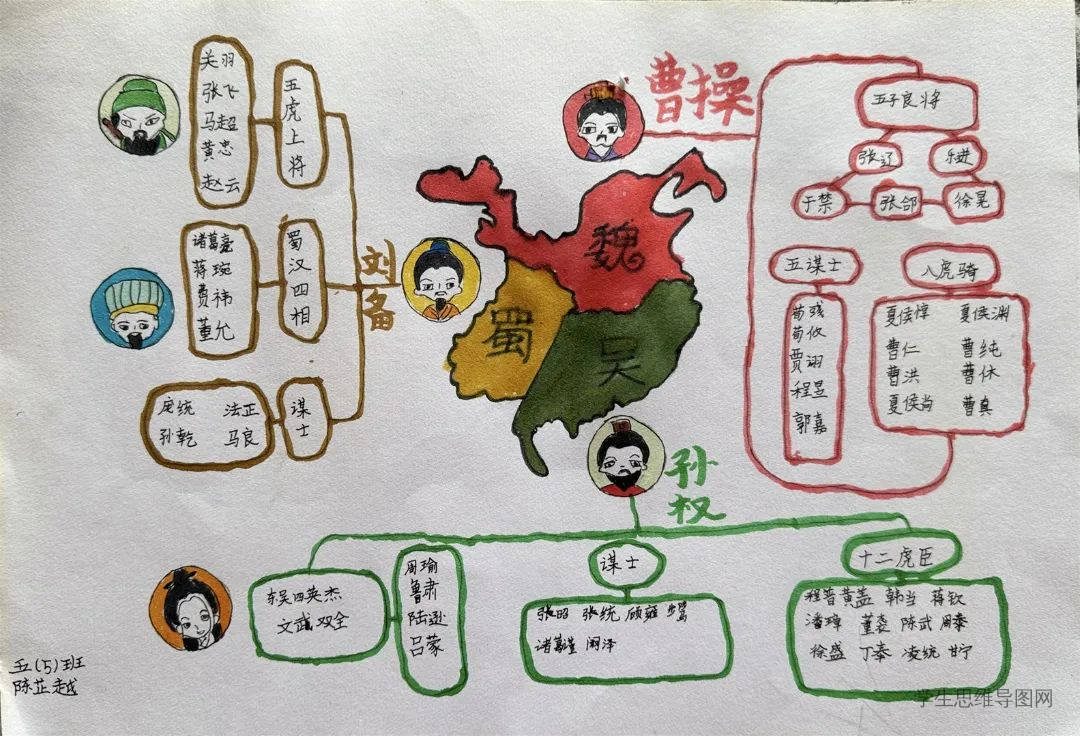 关羽
张飞
马超
黄忠
赵云
五虎上将
诸葛亮
蒋琬
费祎
董允
蜀汉四相
庞统 法正
孙乾 马良
谋士
刘备
魏
蜀
吴
曹操
五子良将
张辽 乐进
于禁 张郃 徐晃
五谋士
荀彧
荀攸
贾诩
程昱
郭嘉
八虎骑
夏侯惇 夏侯渊
曹仁 曹纯
曹洪 曹休
夏侯尚 曹真
孙权
东吴四英杰
文武双全
周瑜
鲁肃
陆逊
吕蒙
谋士
张昭 张纮 顾雍 步骘
诸葛瑾 阚泽
十二虎臣
程普 黄盖 韩当 蒋钦
潘璋 董袭 陈武 周泰
徐盛 丁奉 凌统 甘宁
五(5)班
陈芷越
学生思维导图网